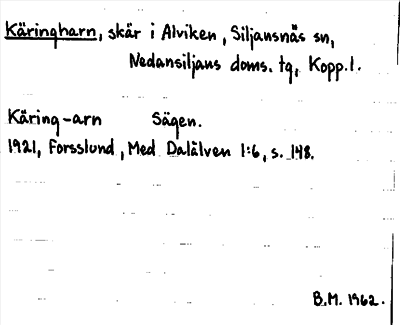 Käringharn, skär i Alviken, Siljansnäs sn,
Nedansiljans doms. tg, Kopp.l.
Käring-arn Sägen.
1921, Forsslund, Med Dalälven 1:6, s. 148.
B.M. 1962.